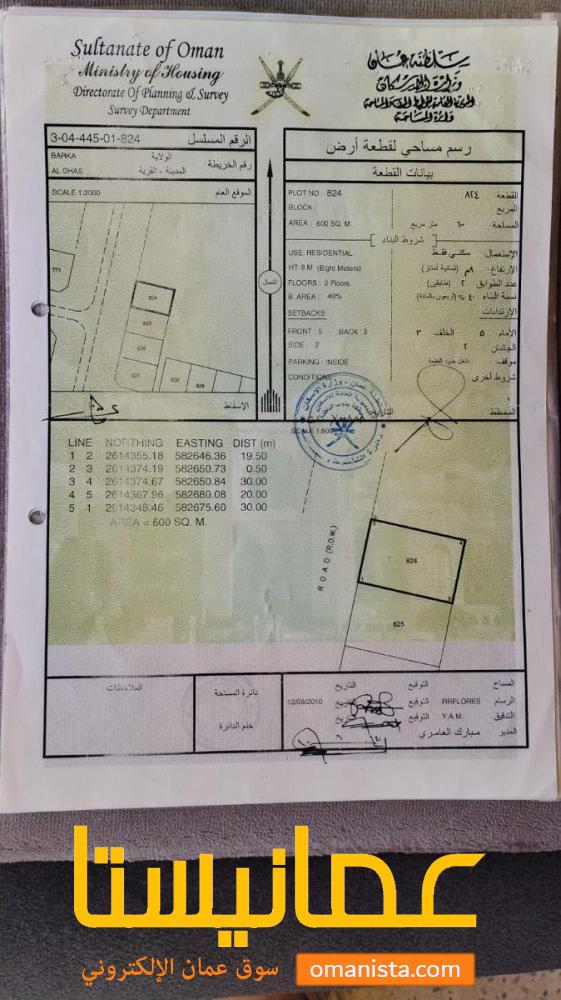 Sultanate of Oman
Ministry of Housing
Directorate of Planning & Survey
Survey Department
سلطنة عمان
وزارة الإسكان
3-04-445-01-824 الرقم المسلسل
BARKA الولاية
AL DHAS المدينة - القرية
رقم الخريطة
SCALE 1:2000 الموقع العام
773
824
825
826
827
828
829
الإسقاط
الشمال
رسم مساحي لقطعة أرض
بيانات القطعة
PLOT NO : 824 القطعة: ٨٢٤
BLOCK : المربع
AREA : 600 SQ. M. المساحة: ٦٠٠ متر مربع
شروط البناء
USE: RESIDENTIAL الإستعمال: سكني فقط
HT: 8 M (Eight Meters) الإرتفاع: ٨م (ثمانية أمتار)
FLOORS : 2 Floors عدد الطوابق ٢ (طابقين)
B. AREA : 40% نسبة البناء ٤٠% (أربعون بالمائة)
SETBACKS الإرتدادات
FRONT : 5 BACK : 3 الأمام ٥ الخلف ٣
SIDE : 2 الجانبان ٢
PARKING : INSIDE موقف: داخل حدود القطعة
CONDITIONS شروط أخرى
المخطط التاريخ
SCALE 1:600
LINE NORTHING EASTING DIST (m)
1 2 2614355.18 582646.36 19.50
2 3 2614374.19 582650.73 0.50
3 4 2614374.67 582650.84 30.00
4 5 2614367.96 582680.08 20.00
5 1 2614348.46 582675.60 30.00
AREA = 600 SQ. M.
ROAD (R.O.W.)
824
825
الملاحظات
دائرة المساحة
ختم الدائرة
المساح التوقيع التاريخ
الرسام RRFLORES التوقيع التاريخ 12/08/2010
التدقيق Y.A.M. التوقيع التاريخ
المدير مبارك العامري
عمانيستا
سوق عمان الإلكتروني omanista.com